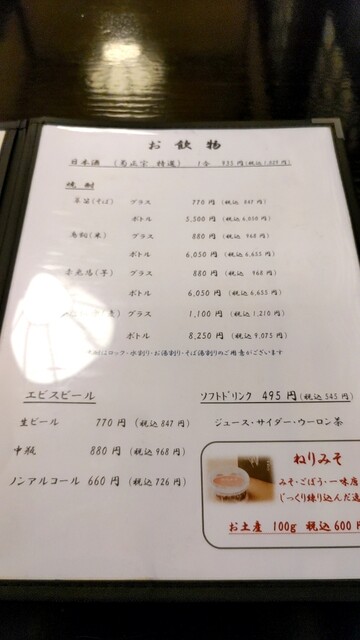 お飲物
日本酒 (菊正宗 特選) 1合 935円(税込1,029円)
焼酎
(そば) グラス 770円(税込 847円)
ボトル 5,500円(税込6,050円)
(米) グラス 880円(税込 968円)
ボトル 6,050円(税込6,655円)
(芋) グラス 880円(税込 968円)
ボトル 6,050円(税込6,655円)
グラス 1,100円(税込1,210円)
ボトル 8,250円(税込9,075円)
ロック・水割り・お湯割り・そば湯割りのご用意がございます
エビスビール
生ビール 770円(税込847円)
中瓶 880円(税込968円)
ノンアルコール 660円(税込726円)
ソフトドリンク 495円(税込545円)
ジュース・サイダー・ウーロン茶
ねりみそ
みそ・ごぼう・一味唐
じっくり練り込んだ逸
お土産 100g 税込600円